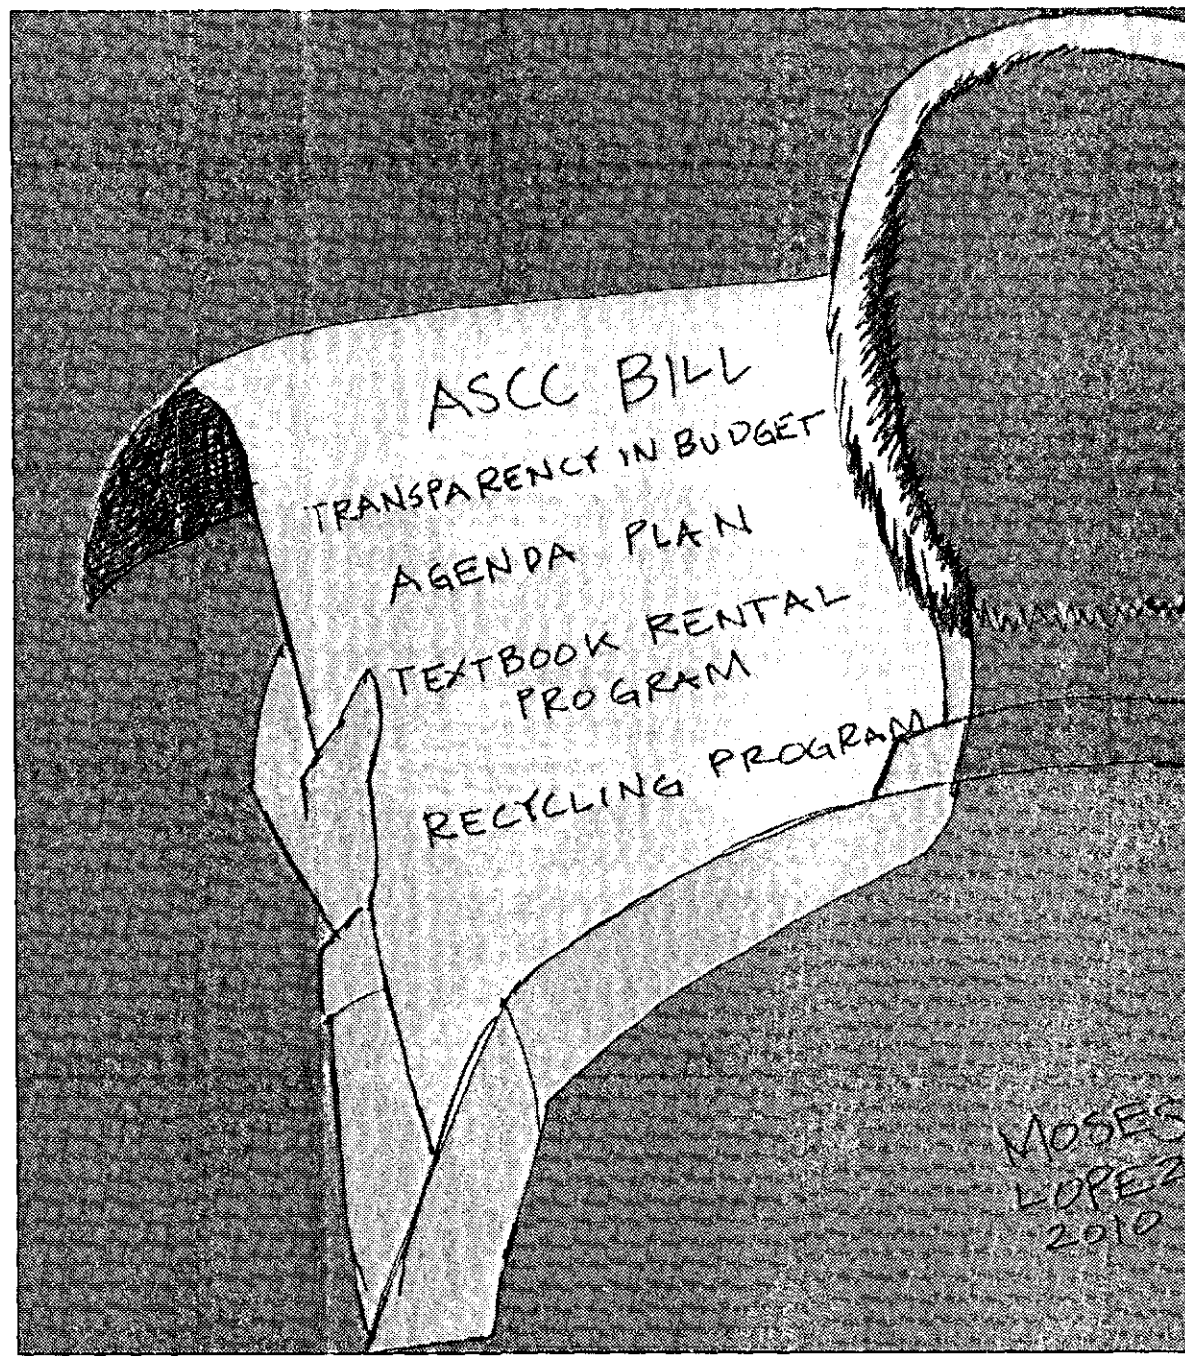 ASCC BILL
TRANSPARENCY IN BUDGET
AGENDA PLAN
TEXTBOOK RENTAL
PROGRAM
RECYCLING PROGRAM
MOSES
LOPEZ
2010